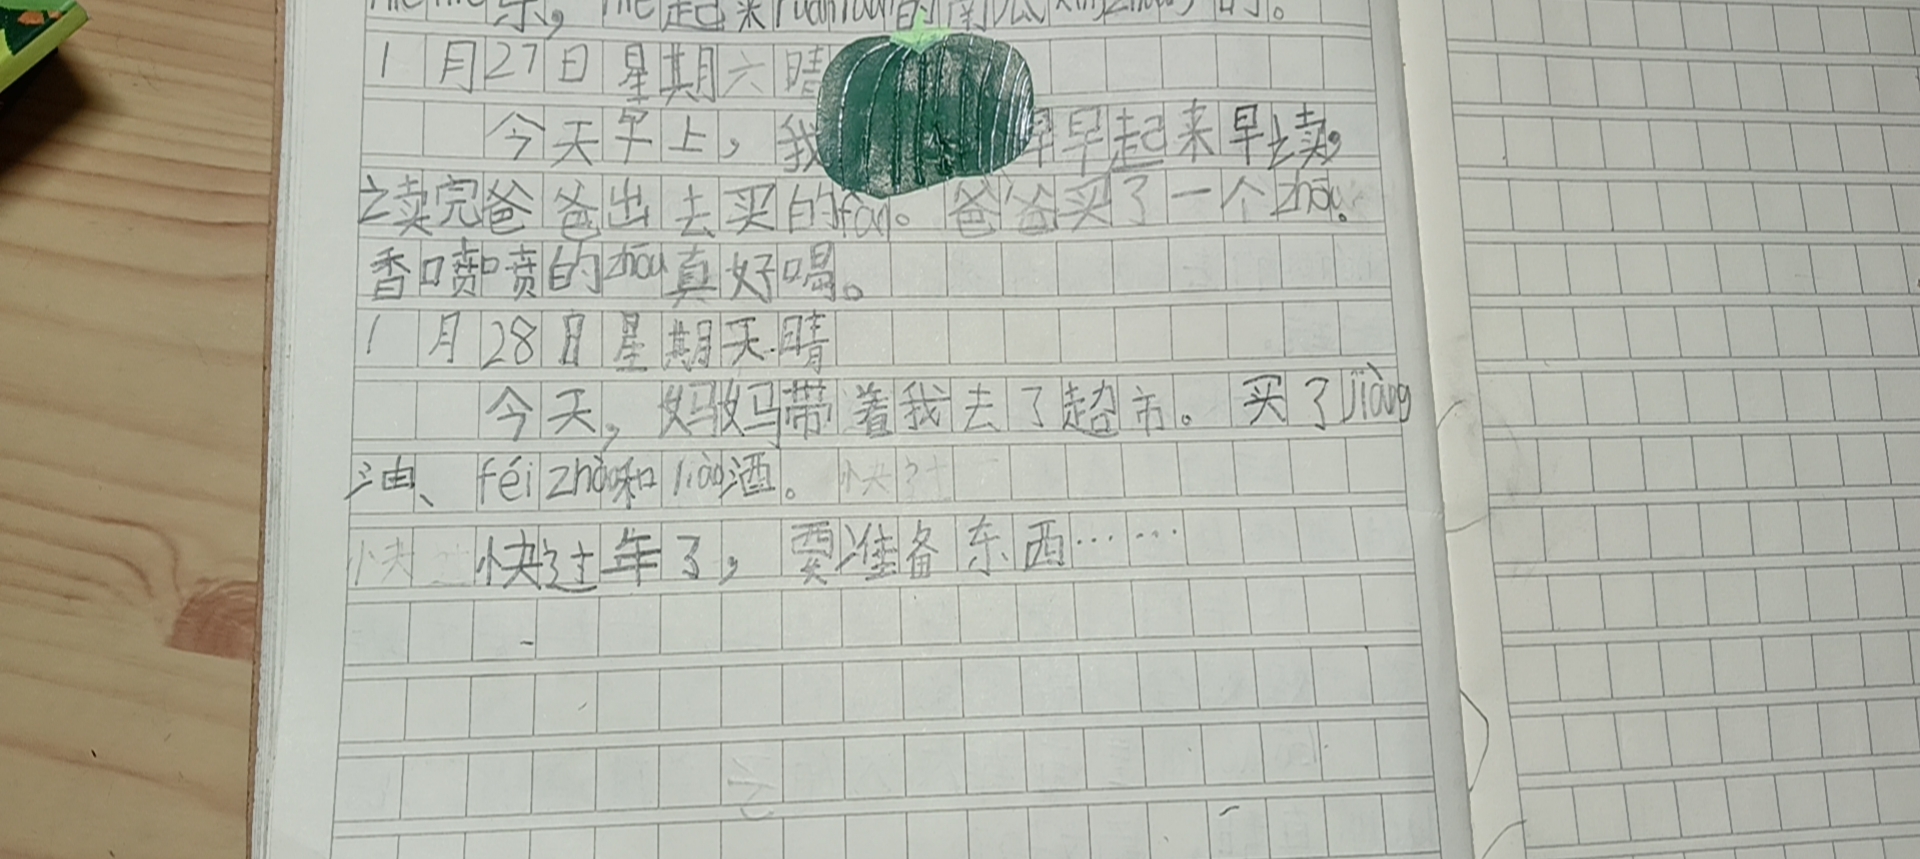 起来ruǎn ruǎn的南瓜
1月27日星期六晴
今天早上，我早早起来早读。
读完爸爸出去买的fàn。爸爸买了一个zhōu。
香喷喷的zhōu真好喝。
1月28日星期天晴
今天，妈妈带着我去了超市。买了jiàng
油、féi zhào和liào酒。
快过年了，要准备东西……